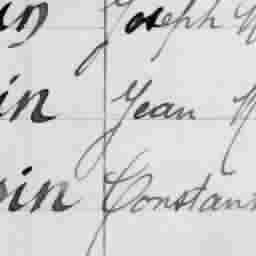 in Joseph
in Jean
in Constan